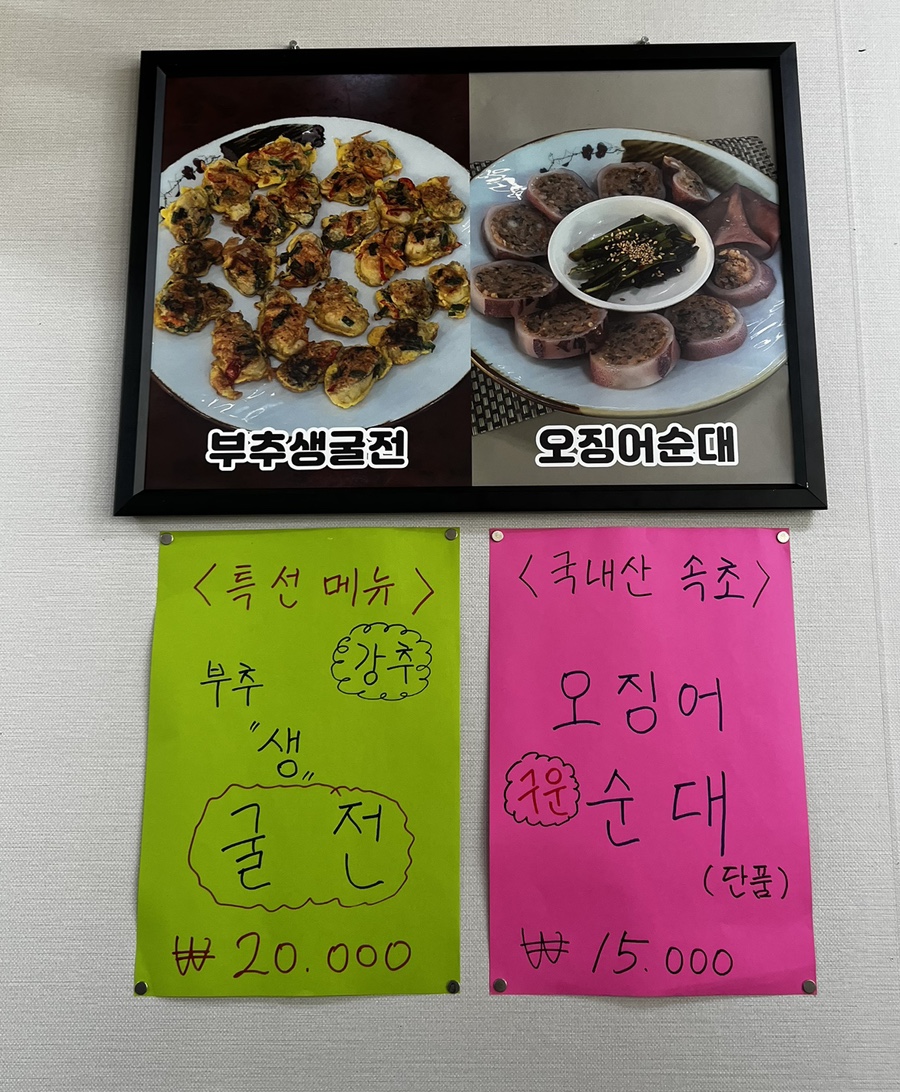 부추생굴전
오징어순대
<특선 메뉴>
강추
부추
"생"
굴 전
₩ 20.000
<국내산 속초>
오징어
구운 순대
(단품)
₩ 15.000